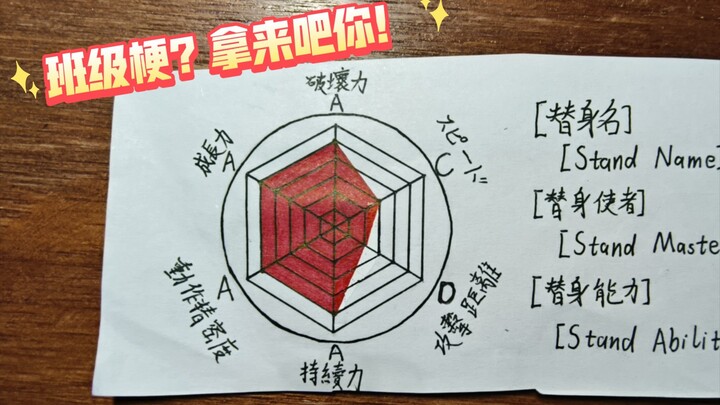 班级梗？拿来吧你！
破壞力
A
スピード
C
成長力
A
動作精密度
A
攻撃距離
D
持續力
A
[替身名]
[Stand Name]
[替身使者]
[Stand Maste
[替身能力]
[Stand Abilit